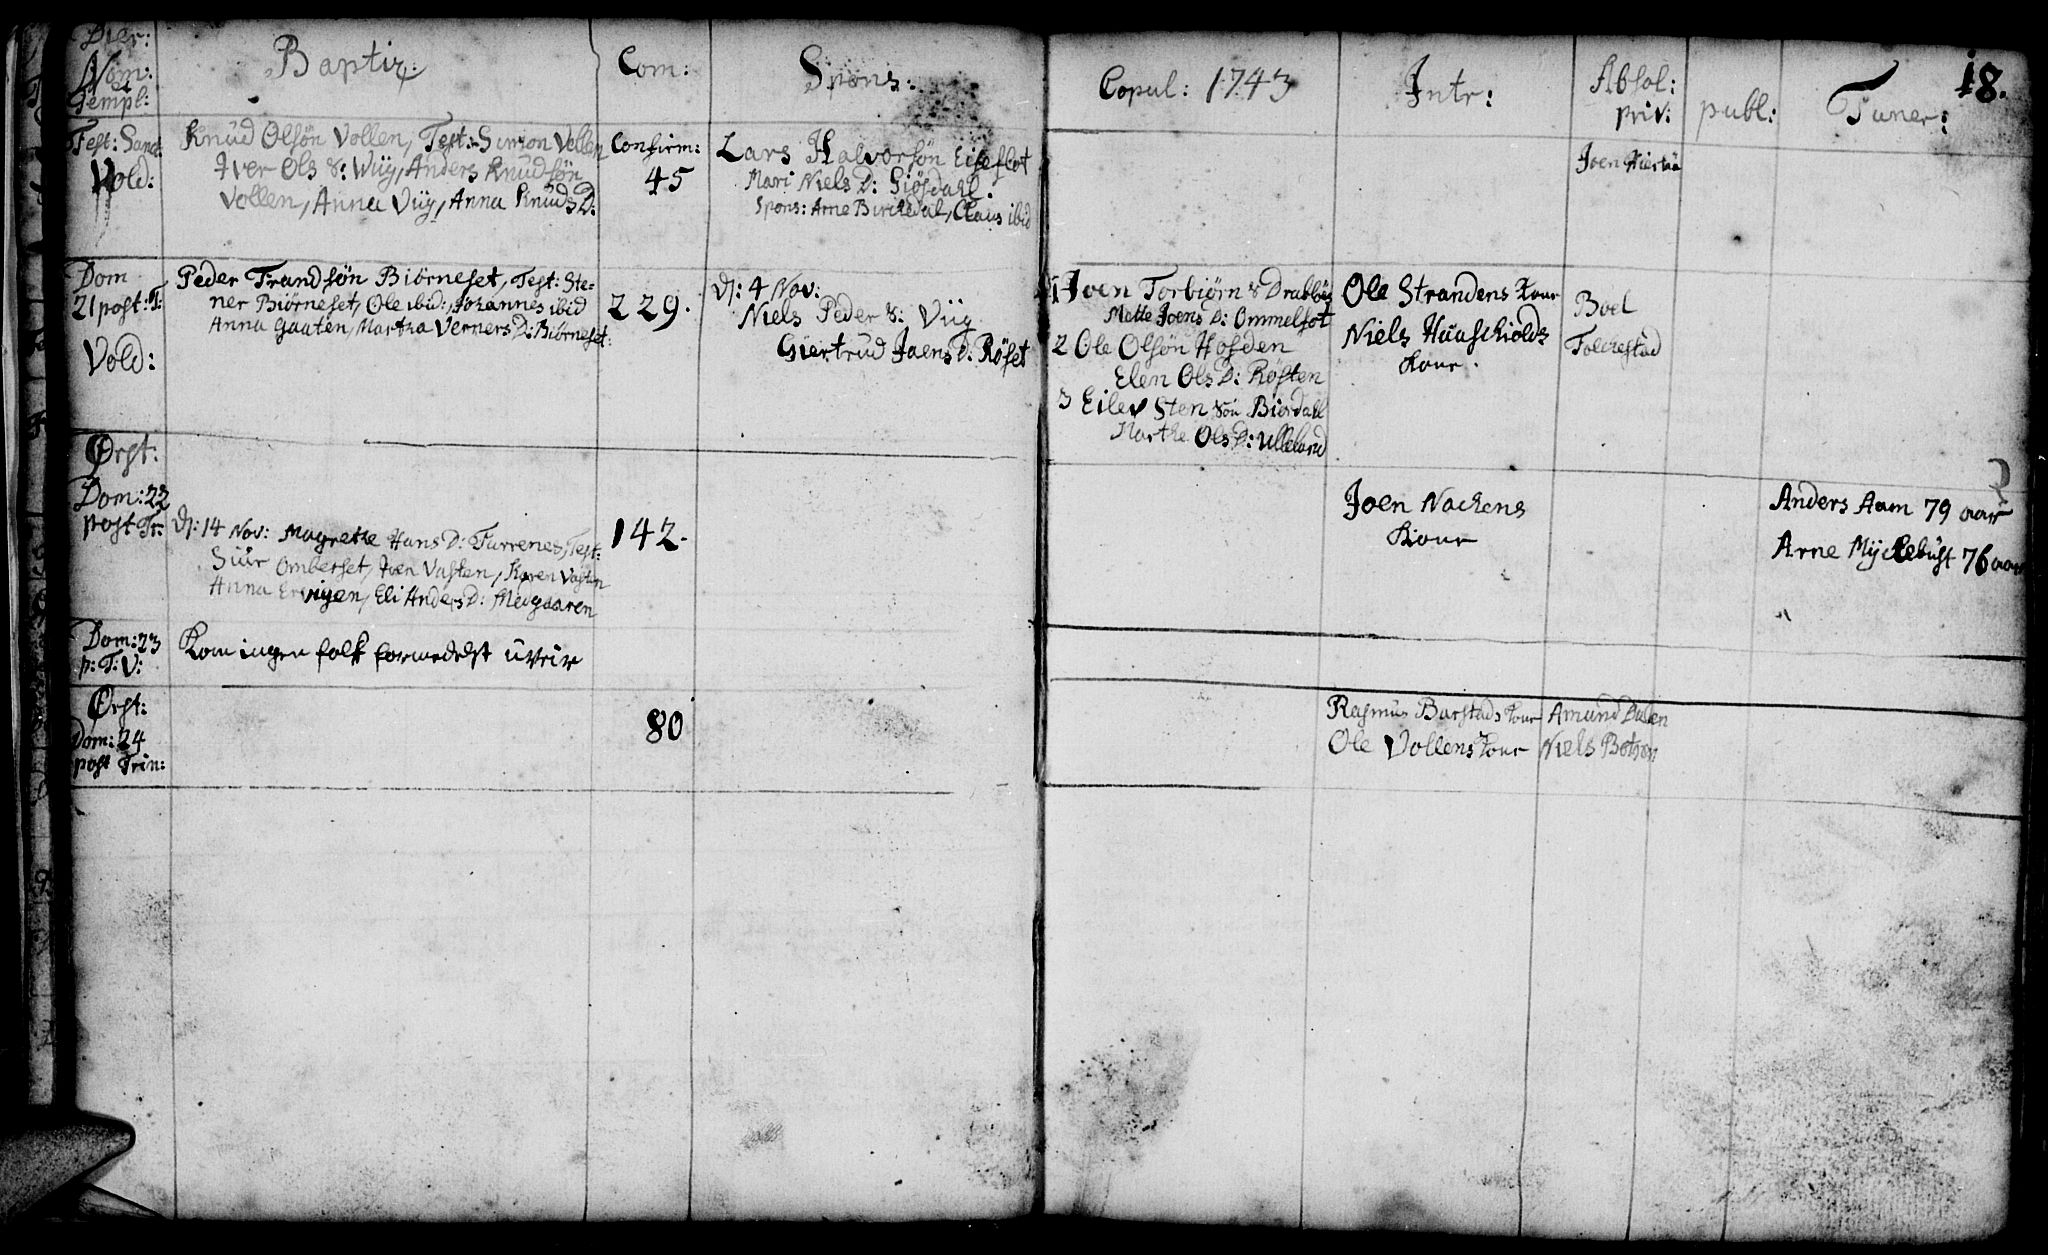 Dier:
Nom:
Templ:
Baptiz:
Com:
Spons:
Copul: 1743
Intr:
Absol:
priv:
publ:
Funer:
18.
Fest: Sanct:
Vold:
Knud Olsøn Vollen, Test: Simon Vollen
Iver Ols S: Wiig, Anders Knudsøn
Vollen, Anna Viig, Anna Knuds D:
Confirm:
45
Lars Halvorsøn
Mari Niels D: Siøsdahl.
Spons: Arne Birckedal, Claus ibid
Joen
Dom
21 post: T:
Vold:
Peder Trandsøn Biørneset, Test: Ste=
ner Biørneset, Ole ibid:, Johannes ibid
Anna Gaaten, Martha Verners D: Biørneset:
229.
D: 4 Nov:
Niels Peder S: Viig
Giertrud Joens D: Røset
1 Joen Torbiørn S
Mette Joens D:
2 Ole Olsøn Hofden
Elen Ols D: Røsten
3 Eilev Sten Søn Biordahl
Marthe Ols D: Ulleland
Ole Strandens Kone
Niels Haaschiolds
Kone.
Boel
Folchestad
Ørst:
Dom: 22
post Tr:
D: 14 Nov: Magrethe Hans D: Furrenes, Test:
Siur Omberset, Joen Vasten, Karen Vasten
Anna Ervigen, Eli Anders D: Melgaaren
142.
Joen Nackens
Kone
Anders Aam 79 aar
Arne Myckebust 76 aar
Dom: 23
p: T: V:
Kom ingen folk formedelst uveir
Ørst:
Dom: 24
post Trin:
80
Rasmus Barstads Kone
Ole Vollens Kone
Amund Dalen
Niels Botnen